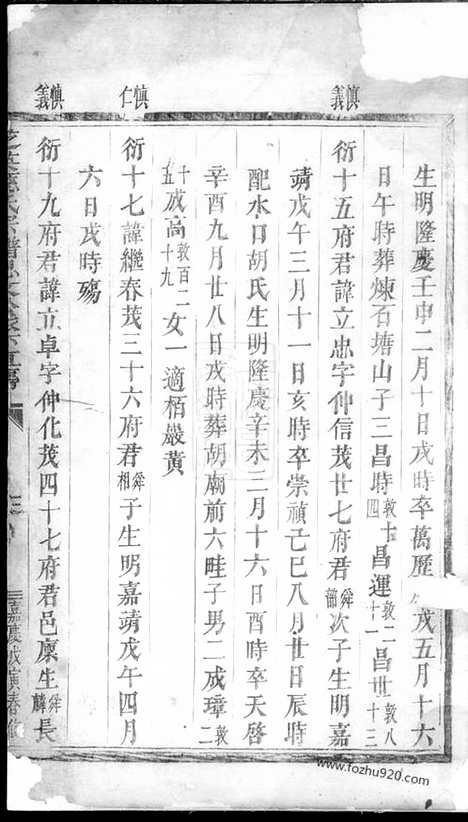 慎義
慎仁
慎義
生明隆慶壬申二月十日戌時卒萬歷戌五月十六
日午時葬煉石塘山子三昌時敦四十昌運敦二十一昌世敦八十三
衍十五府君諱立忠字仲信茂廿七府君舜次子生明嘉
靖戊午三月十一日亥時卒崇禎己巳八月廿日辰時
配水口胡氏生明隆慶辛未三月十六日酉時卒天啓
辛酉九月廿八日戌時葬胡廟前六畦子男二成璋敦二
十五成高敦百二十九女一適栢巖黃
衍十七諱繼春茂三十六府君舜相子生明嘉靖戊午四月
六日戌時殤
衍十九府君諱立卓字仲化茂四十七府君邑廩生舜麟長
三
www.fozhu920.com